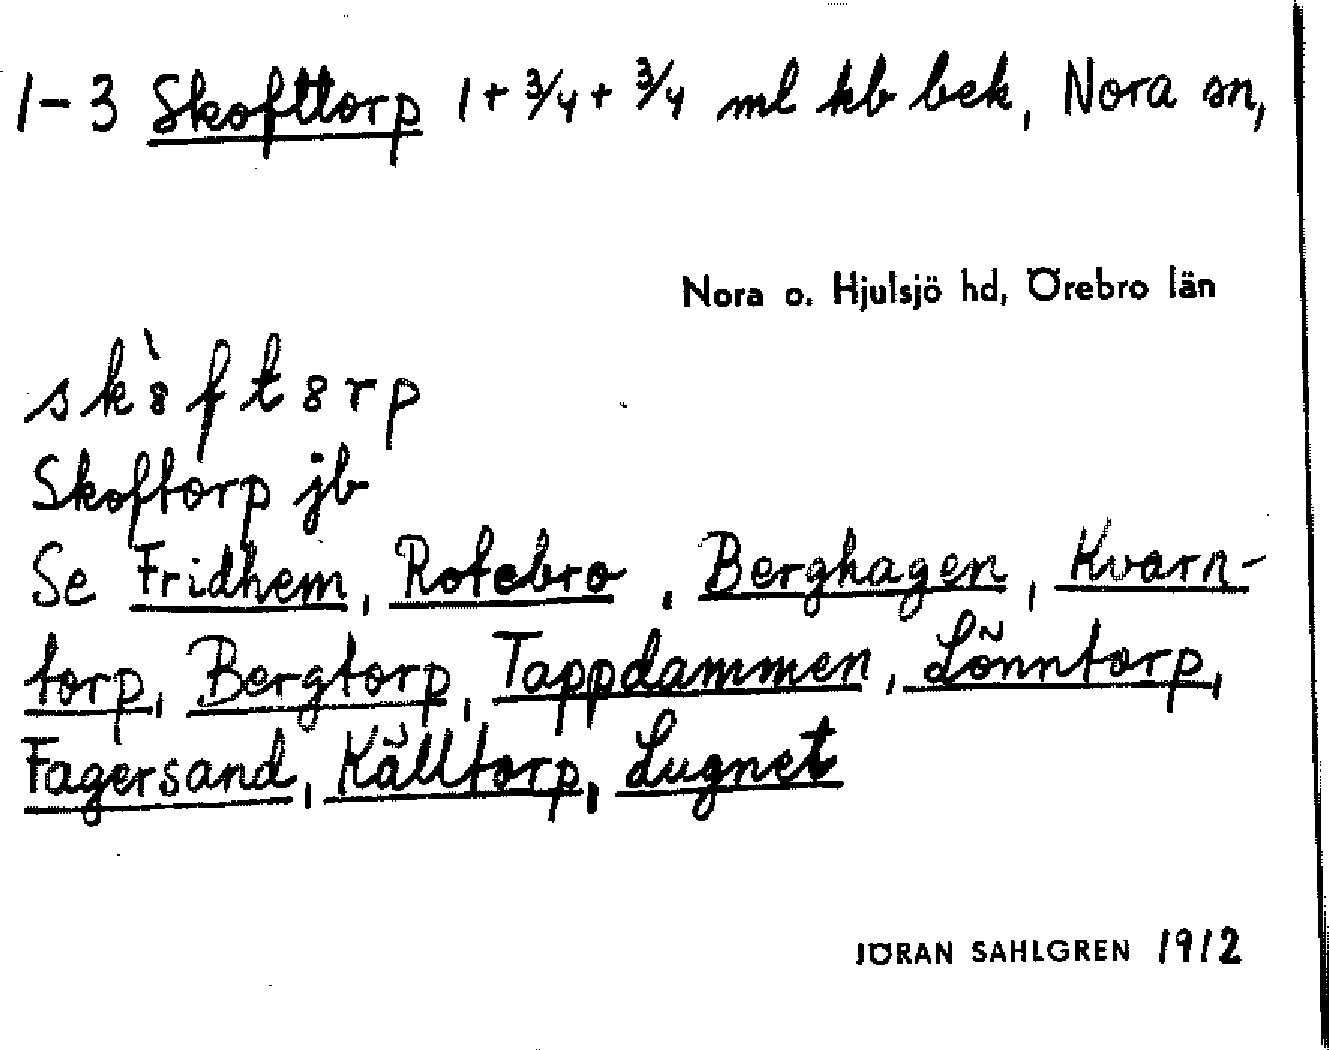 1-3 Skofttorp 1 + 3/4 + 3/4 ml kb bek, Nora sn,
Nora o. Hjulsjö hd, Örebro län
sk8̀ft8rp
Skoftorp jb
Se Fridhem, Rotebro, Berghagen, Kvarn-
torp, Bergtorp, Tappdammen, Lönntorp,
Fagersand, Källtorp, Lugnet
JÖRAN SAHLGREN 1912